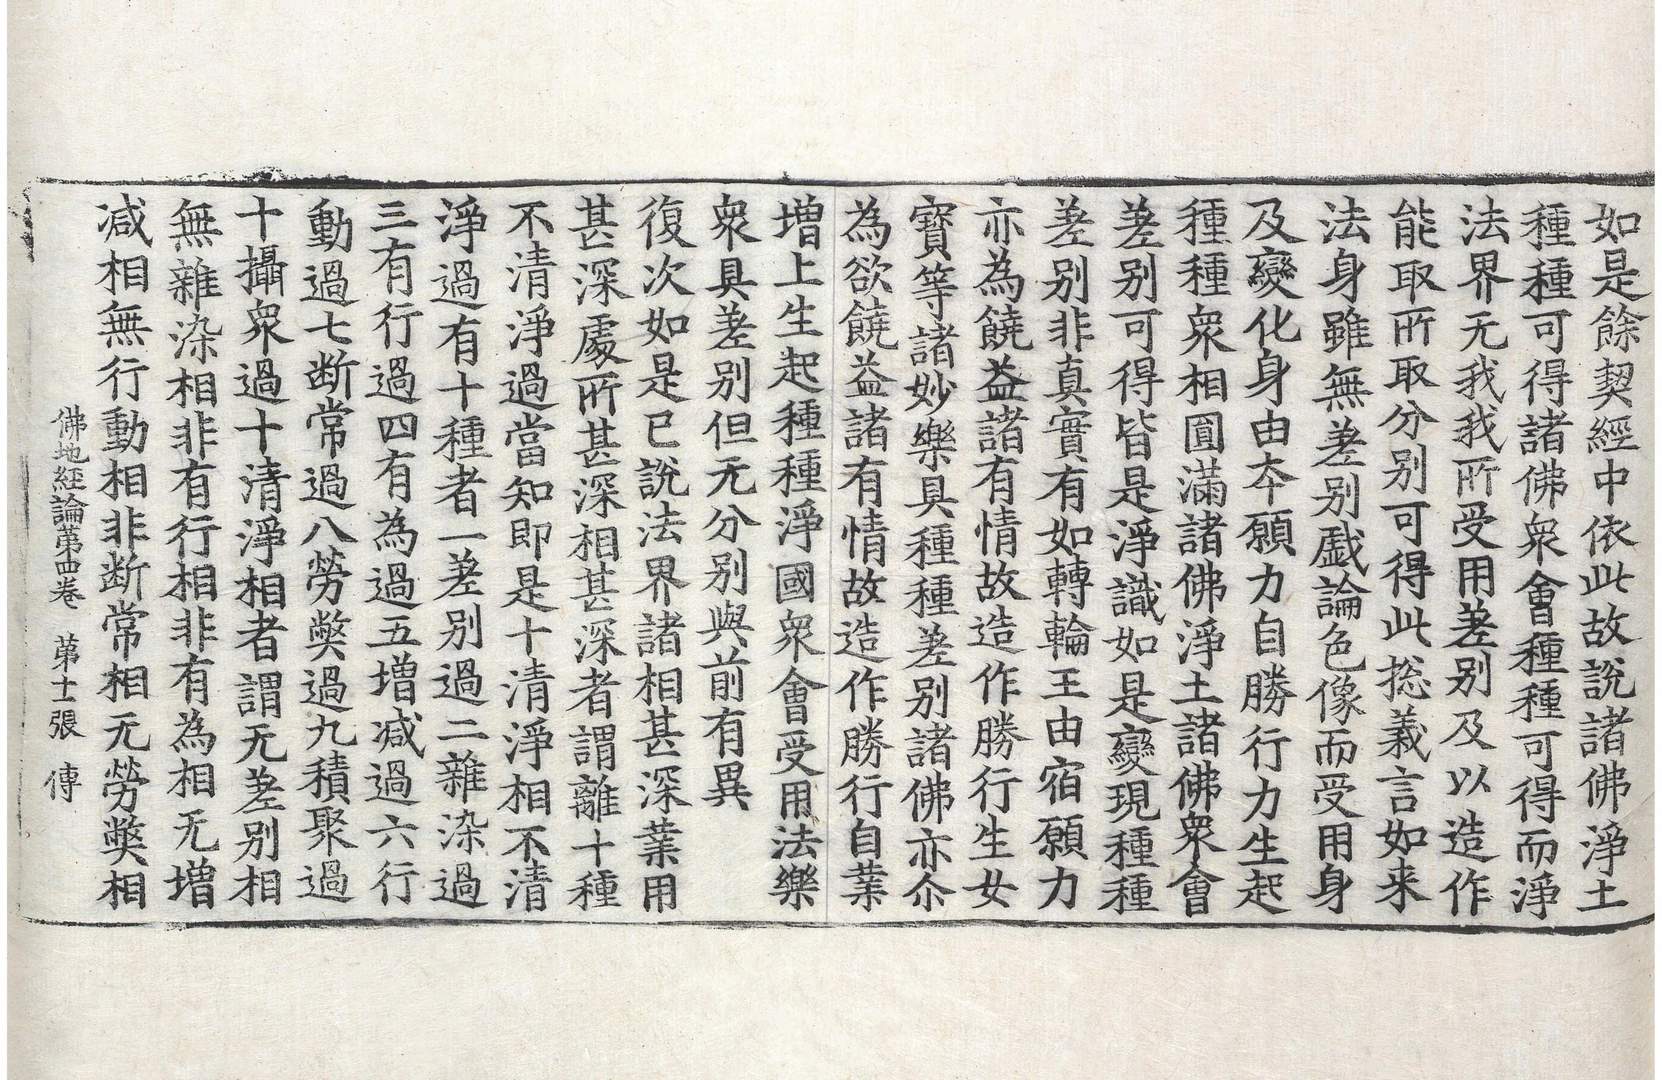 如是餘契經中依此故說諸佛淨土
種種可得諸佛衆會種種可得而淨
法界无我我所受用差别及以造作
能取所取分别可得此捴義言如来
法身雖無差别戱論色像而受用身
及變化身由夲願力自勝行力生起
種種衆相圓滿諸佛淨土諸佛衆會
差别可得皆是淨識如是變現種種
差别非真實有如轉輪王由宿願力
亦為饒益諸有情故造作勝行生女
寶等諸妙樂具種種差别諸佛亦尒
為欲饒益諸有情故造作勝行自業
增上生起種種淨國衆會受用法樂
衆具差别但无分别與前有異
復次如是已說法界諸相甚深業用
甚深處所甚深相甚深者謂離十種
不清淨過當知即是十清淨相不清
淨過有十種者一差别過二雜染過
三有行過四有為過五增減過六行
動過七断常過八勞弊過九積聚過
十攝衆過十清淨相者謂无差别相
無雜染相非有行相非有為相无增
減相無行動相非断常相无勞弊相
佛地經論第四卷 第十二張 傳